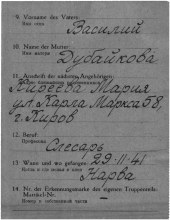 9. Vorname des Vaters:
Имя отца
Василий
10. Name der Mutter:
Имя матери
Дубайкова
11. Anschrift der nächsten Angehörigen:
Киреева Мария
ул. Карла Маркса 58,
г. Киров
12. Beruf:
Профессия
Слесарь
13. Wann und wo gefangen:
29-11-41
Нарва
14. Nr. der Erkennungsmarke des eigenen Truppenteils: